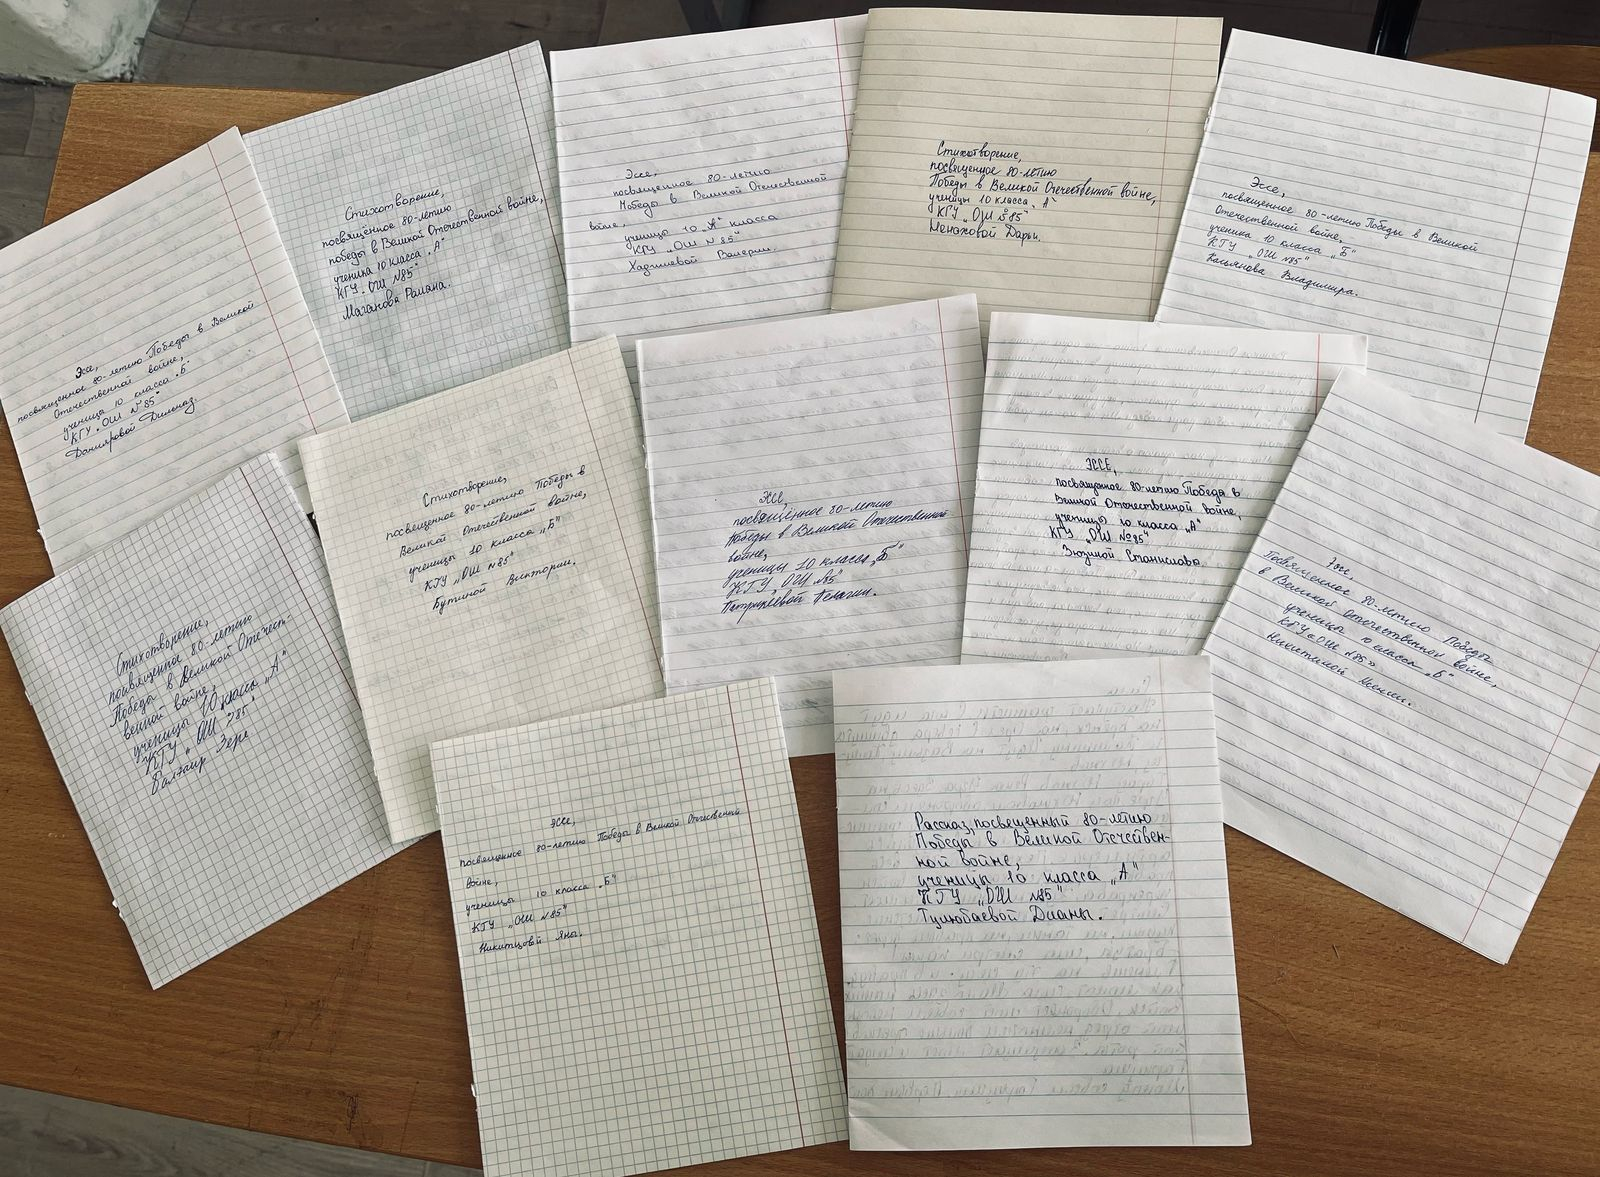 Эссе,
посвященное 80-летию Победы в Великой
Отечественной войне,
ученицы 10 класса „Б"
КГУ „ОШ №85"
Данияровой Дильназ.
Стихотворение,
посвящённое 80-летию
победы в Великой Отечественной войне,
ученика 10 класса „А"
КГУ „ОШ №85"
Маганова Романа.
Эссе,
посвященное 80-летию
Победы в Великой Отечественной
войне,
ученицы 10 „А" класса
КГУ „ОШ №85"
Валерии.
Стихотворение,
посвященное 80-летию
Победы в Великой Отечественной войне,
ученицы 10 класса „А"
КГУ „ОШ №85"
Дарьи.
Эссе,
посвященное 80-летию Победы в Великой
Отечественной войне,
ученика 10 класса „Б"
КГУ „ОШ №85"
Касьянова Владимира.
Стихотворение,
посвященное 80-летию
Победы в Великой Отечест-
венной войне,
ученицы 10 класса „А"
КГУ „ОШ №85"
Стихотворение,
посвященное 80-летию Победы в
Великой Отечественной войне,
ученицы 10 класса „Б"
КГУ „ОШ №85"
Бутиной Виктории.
Эссе,
посвящённое 80-летию
Победы в Великой Отечественной
войне,
ученицы 10 класса „Б"
КГУ „ОШ №85"
Пелагии.
ЭССЕ,
посвященное 80-летию Победы в
Великой Отечественной войне,
ученицы 10 класса „А"
КГУ „ОШ №85"
Зюзиной Станиславы.
Эссе,
Посвященное 80-летию Победы
в Великой Отечественной войне,
ученицы 10 класса „Б"
КГУ «ОШ №85»
Никитиной
ЭССЕ,
посвященное 80-летию Победы в Великой Отечественной
войне,
ученицы 10 класса „Б"
КГУ „ОШ №85"
Никитцовой Яны.
Рассказ, посвещенный 80-летию
Победы в Великой Отечествен-
ной войне,
ученицы 10 класса „А"
КГУ „ОШ №85"
Тулюбаевой Дианы.